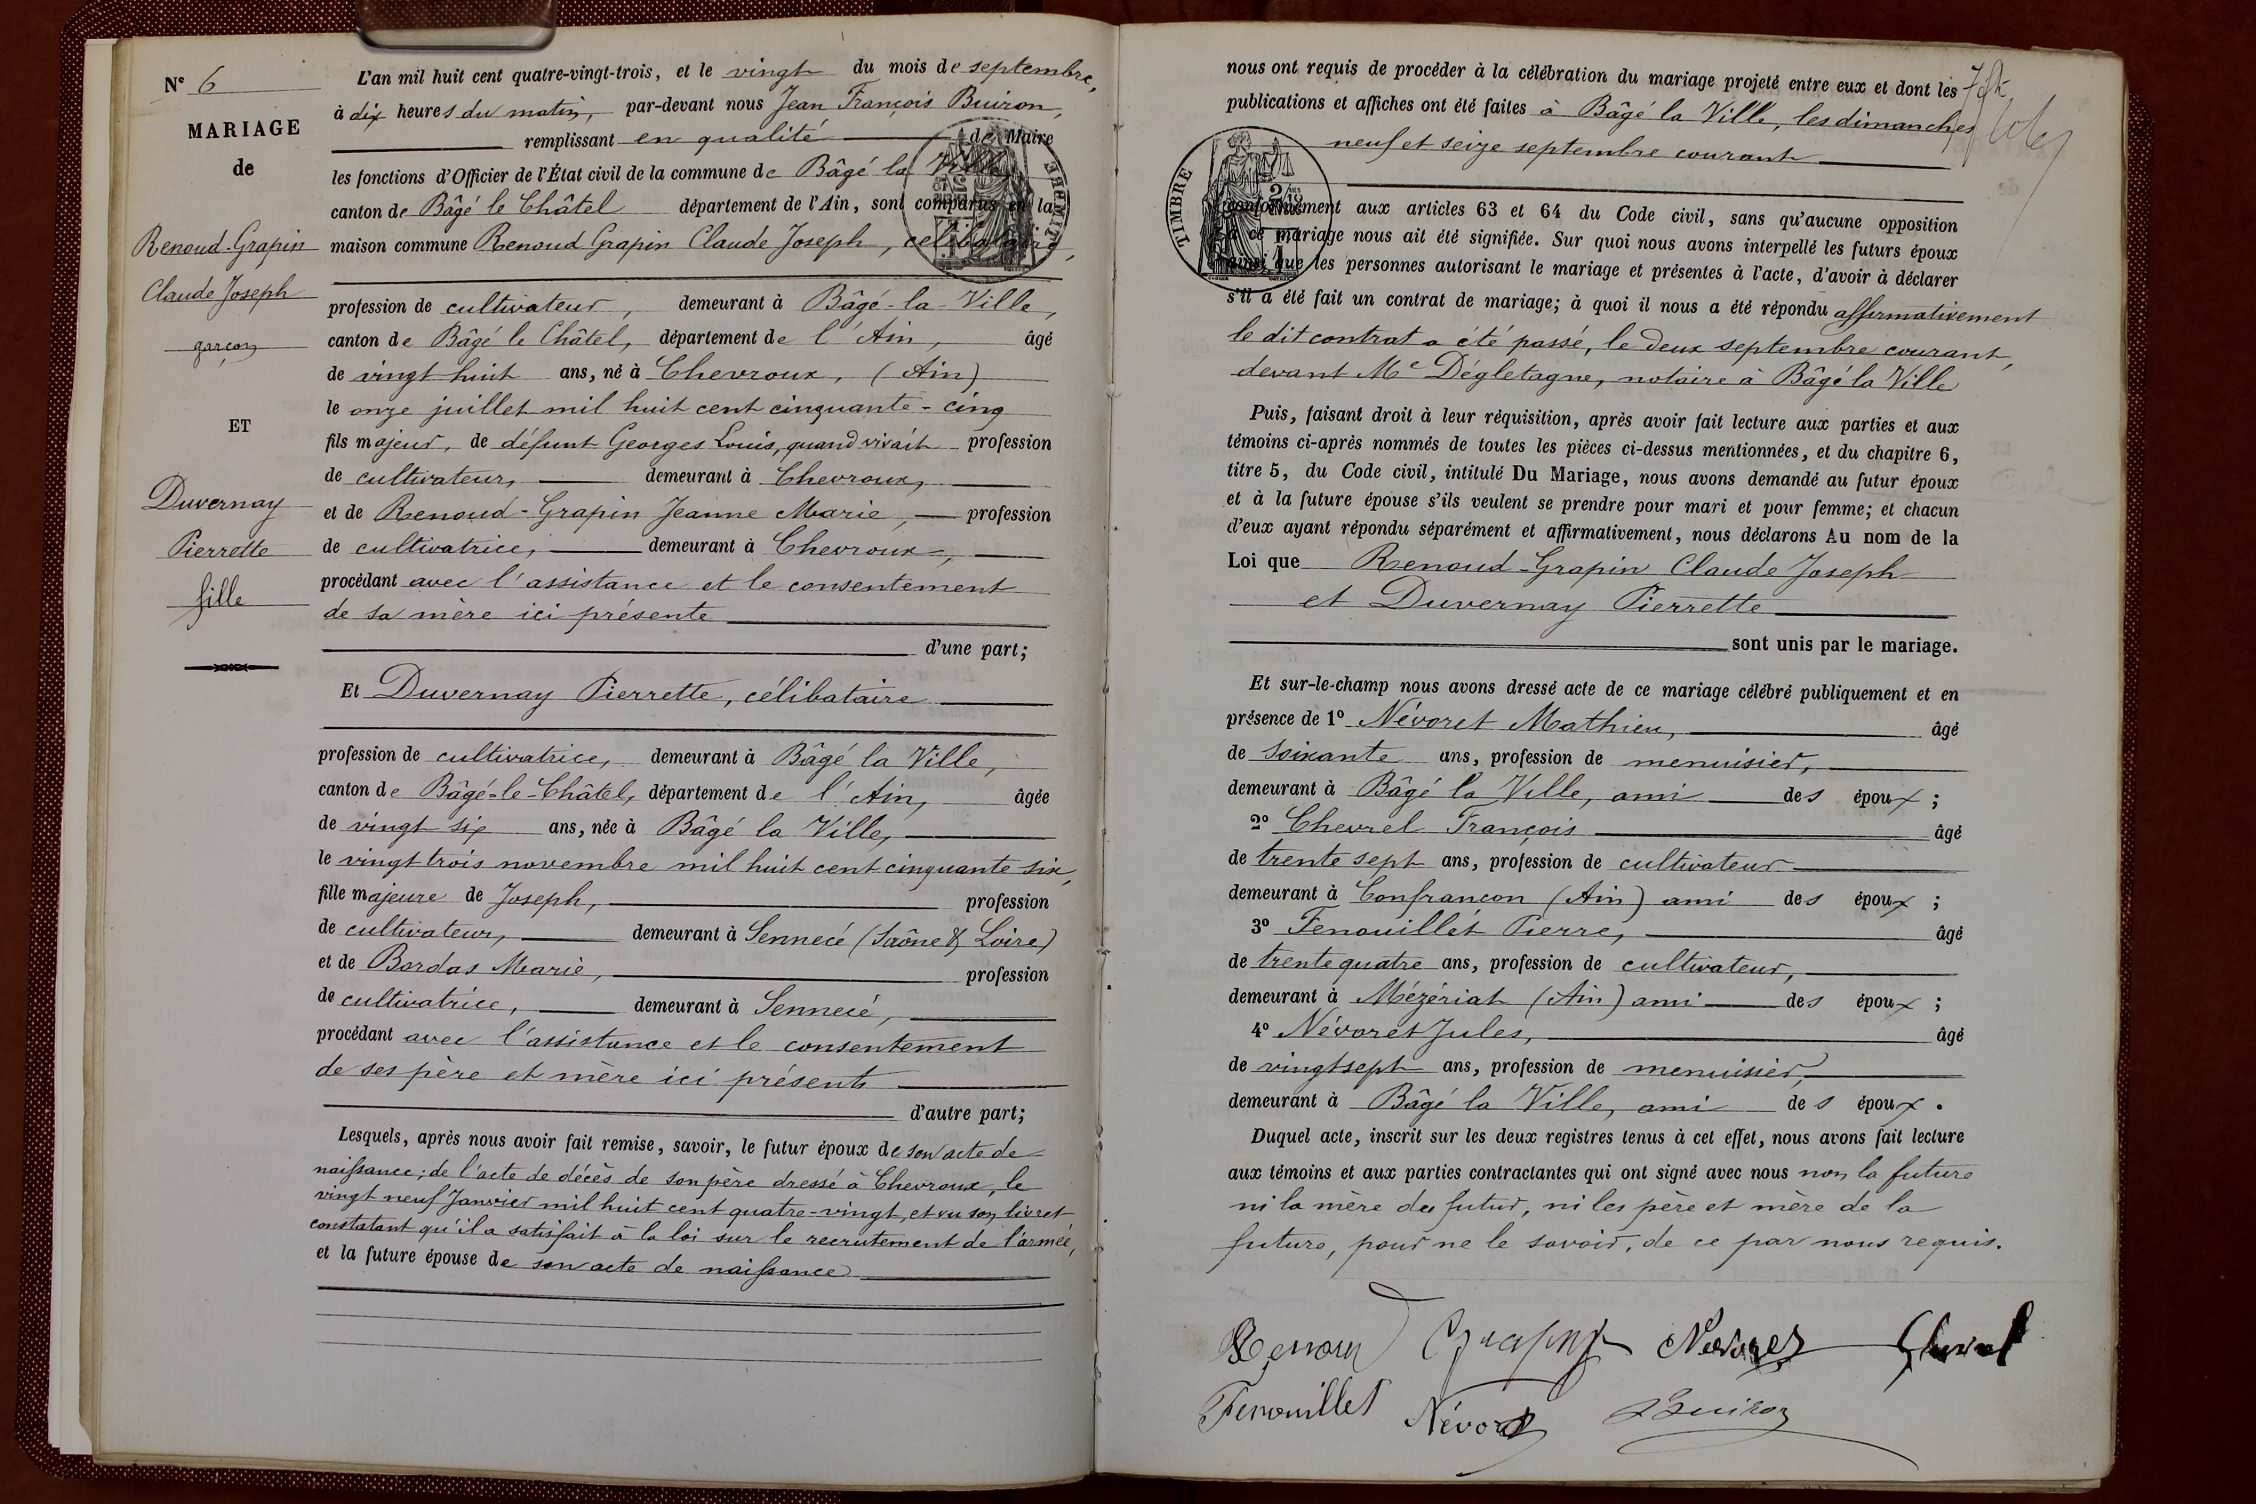 N° 6
MARIAGE
de
Renoud-Grapin
Claude Joseph
garçon
ET
Duvernay
Pierrette
fille
L'an mil huit cent quatre-vingt-trois, et le vingt du mois de septembre,
à dix heures du matin, par-devant nous Jean François Buiron,
remplissant en qualité de Maire
les fonctions d'Officier de l'État civil de la commune de Bâgé la Ville,
canton de Bâgé le Châtel département de l'Ain, sont comparus en la
maison commune Renoud Grapin Claude Joseph, célibataire,
profession de cultivateur, demeurant à Bâgé-la-Ville,
canton de Bâgé le Châtel, département de l'Ain, âgé
de vingt huit ans, né à Chevroux, (Ain)
le onze juillet mil huit cent cinquante-cinq
fils majeur, de défunt Georges Louis, quand vivait profession
de cultivateur, demeurant à Chevroux,
et de Renoud-Grapin Jeanne Marie, profession
de cultivatrice, demeurant à Chevroux,
procédant avec l'assistance et le consentement
de sa mère ici présente
d'une part;
Et Duvernay Pierrette, célibataire
profession de cultivatrice, demeurant à Bâgé la Ville,
canton de Bâgé-le-Châtel, département de l'Ain, âgée
de vingt six ans, née à Bâgé la Ville,
le vingt trois novembre mil huit cent cinquante six,
fille majeure de Joseph, profession
de cultivateur, demeurant à Sennecé (Saône & Loire)
et de Bordas Marie, profession
de cultivatrice, demeurant à Sennecé,
procédant avec l'assistance et le consentement
de ses père et mère ici présents
d'autre part;
Lesquels, après nous avoir fait remise, savoir, le futur époux de son acte de
naissance; de l'acte de décès de son père dressé à Chevroux, le
vingt neuf Janvier mil huit cent quatre-vingt, et vu son livret
constatant qu'il a satisfait à la loi sur le recrutement de l'armée,
et la future épouse de son acte de naissance
TIMBRE
nous ont requis de procéder à la célébration du mariage projeté entre eux et dont les
publications et affiches ont été faites à Bâgé la Ville, les dimanches
neuf et seize septembre courant
TIMBRE
conformément aux articles 63 et 64 du Code civil, sans qu'aucune opposition
à ce mariage nous ait été signifiée. Sur quoi nous avons interpellé les futurs époux
ainsi que les personnes autorisant le mariage et présentes à l'acte, d'avoir à déclarer
s'il a été fait un contrat de mariage; à quoi il nous a été répondu affirmativement
le dit contrat a été passé, le deux septembre courant,
devant Me Dégletagne, notaire à Bâgé la Ville
Puis, faisant droit à leur réquisition, après avoir fait lecture aux parties et aux
témoins ci-après nommés de toutes les pièces ci-dessus mentionnées, et du chapitre 6,
titre 5, du Code civil, intitulé Du Mariage, nous avons demandé au futur époux
et à la future épouse s'ils veulent se prendre pour mari et pour femme; et chacun
d'eux ayant répondu séparément et affirmativement, nous déclarons Au nom de la
Loi que Renoud-Grapin Claude Joseph
et Duvernay Pierrette
sont unis par le mariage.
Et sur-le-champ nous avons dressé acte de ce mariage célébré publiquement et en
présence de 1° Névoret Mathieu, âgé
de soixante ans, profession de menuisier,
demeurant à Bâgé la Ville, ami des époux;
2° Chevrel François âgé
de trente sept ans, profession de cultivateur
demeurant à Confrançon (Ain) ami des époux;
3° Fenouillét Pierre, âgé
de trente quatre ans, profession de cultivateur,
demeurant à Mézériat (Ain) ami des époux;
4° Névoret Jules, âgé
de vingt sept ans, profession de menuisier,
demeurant à Bâgé la Ville, ami des époux.
Duquel acte, inscrit sur les deux registres tenus à cet effet, nous avons fait lecture
aux témoins et aux parties contractantes qui ont signé avec nous non la future
ni la mère du futur, ni les père et mère de la
future, pour ne le savoir, de ce par nous requis.
Renoud Grapin Névoret Chevrel
Fenouillet Névoret Buiron